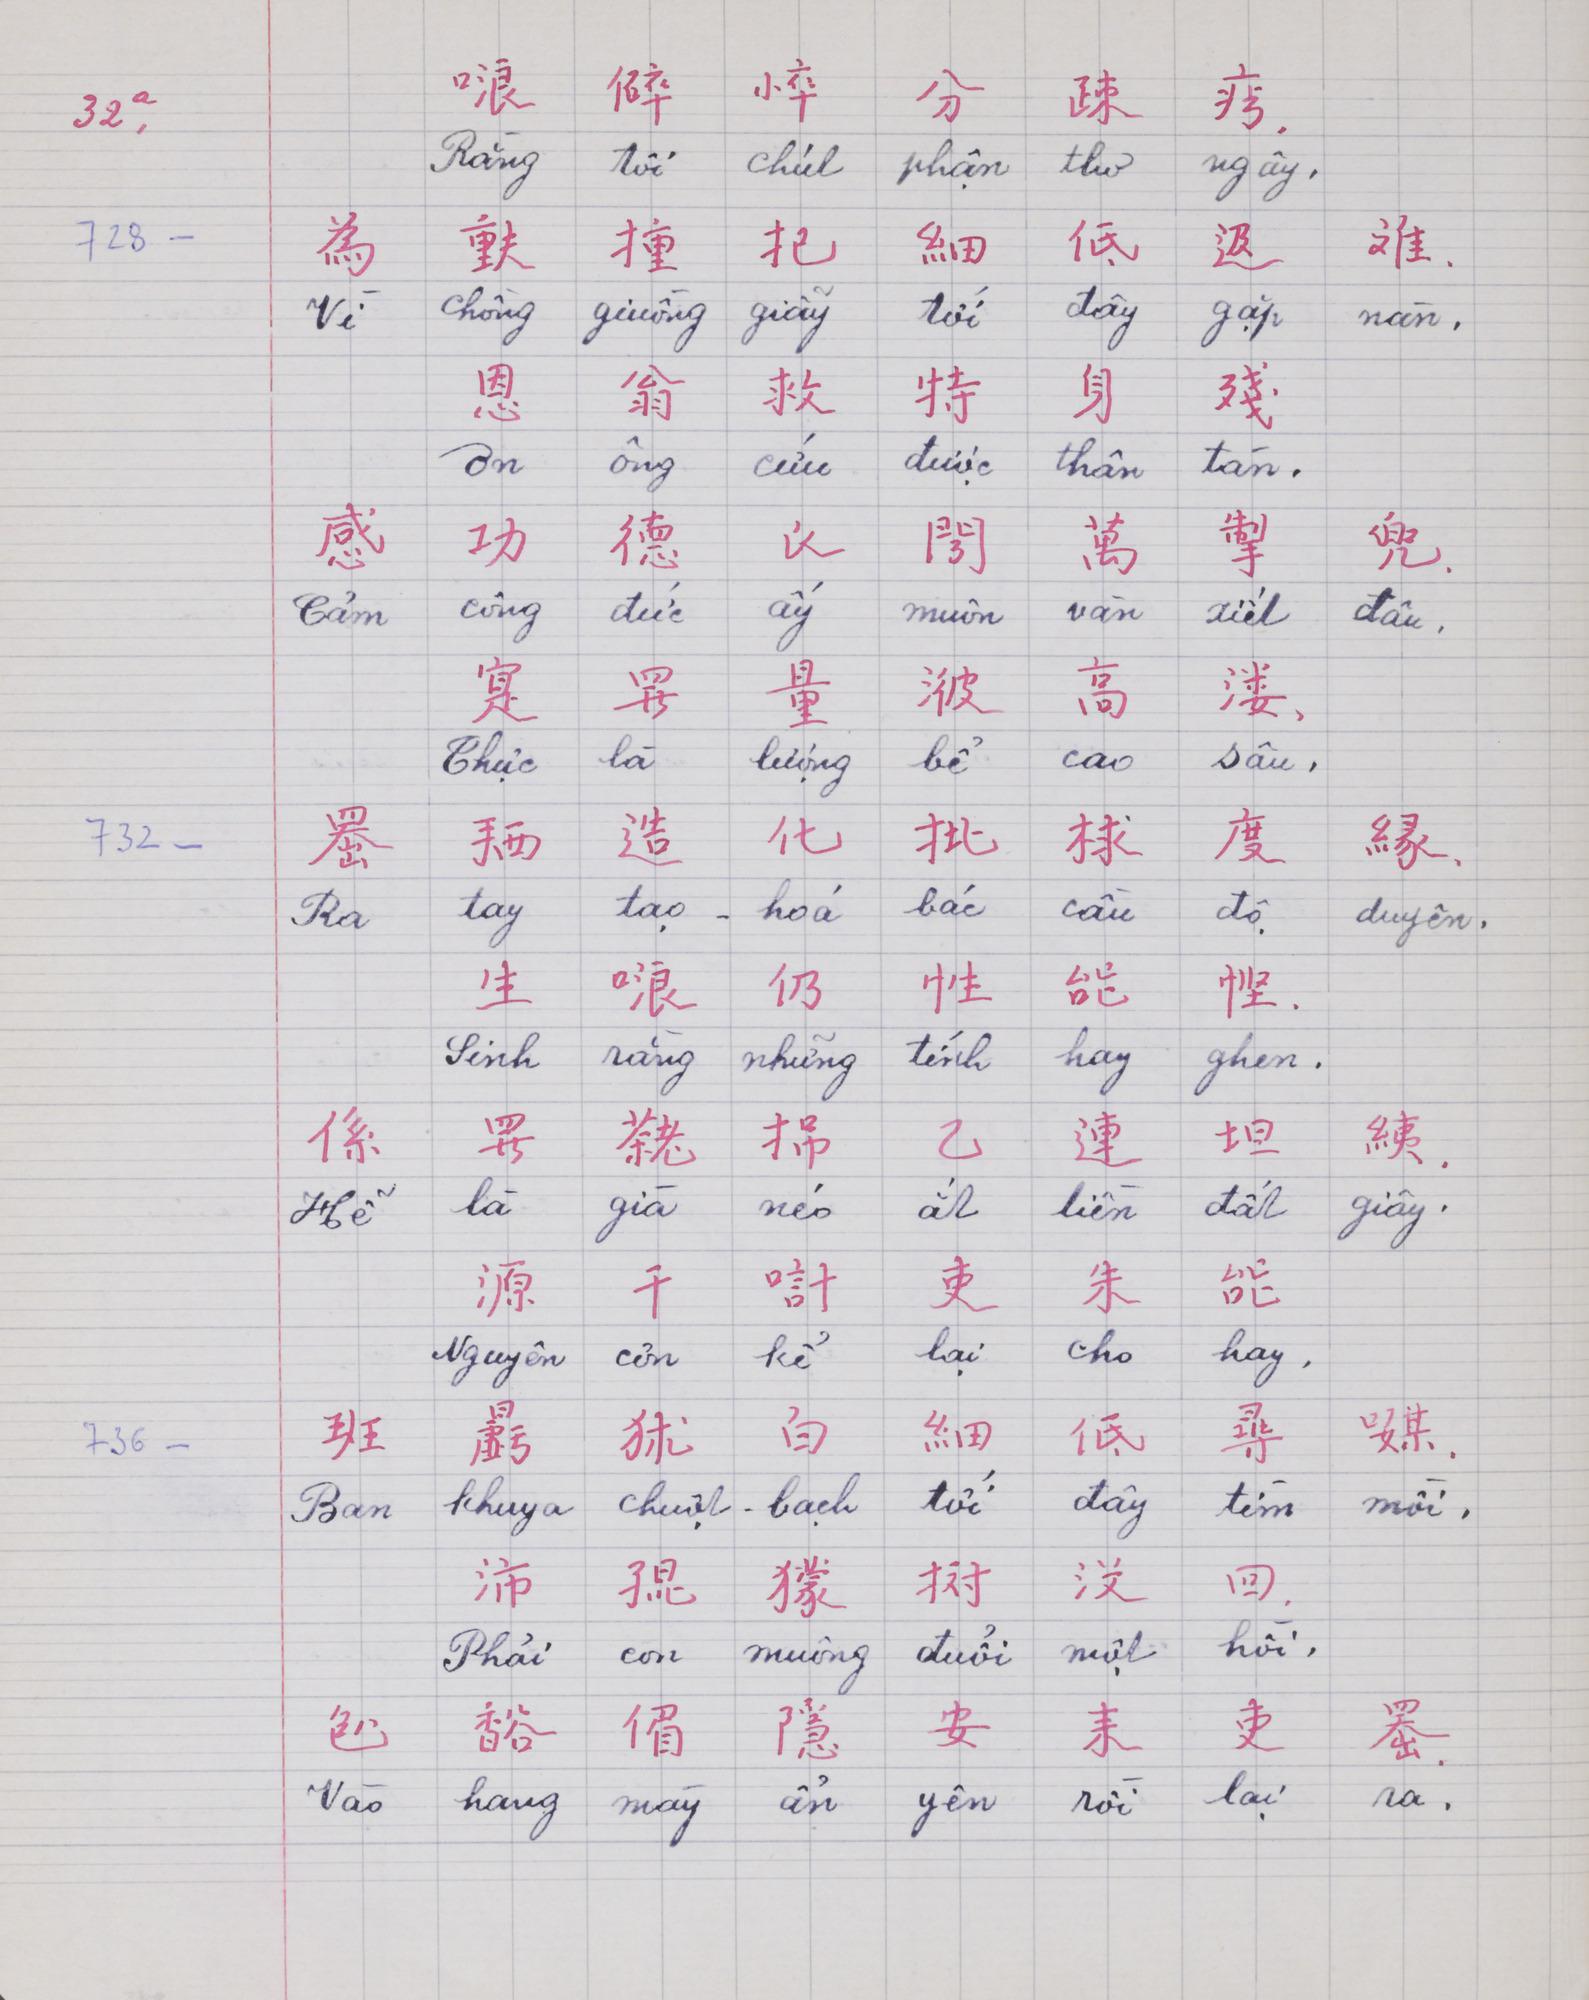 32ª.
哴 碎 悴 分 疎 痴.
Rằng tôi chút phận thơ ngây.
728 —
為 撞 把 細 低 返 难.
Vì chồng giuồng giẫy tới đây gặp nàn.
恩 翁 救 特 身 殘
Ơn ông cứu được thân tàn.
感 功 德 閍 萬 掣 兜.
Cảm công đức ấy muôn vàn xiết đâu.
寔 量 高 溇.
Thực là lượng bể cao sâu.
732 —
造 化 批 梂 度 緣.
Ra tay tạo - hoá bắc cầu độ duyên.
生 哴 仍 性 能 慳.
Sinh rằng những tính hay ghen.
係 乙 連 坦 .
Hễ là già néo ắt liền đắt giây.
源 干 計 吏 朱 能
Nguyên cơn kể lại cho hay.
736 —
班 白 細 低 尋 .
Ban khuya chuột - bạch tới đây tìm mồi.
沛 猱 没 回.
Phải con muông đuổi một hồi.
隱 安 耒 吏 .
Vào hang mày ẩn yên rồi lại ra.